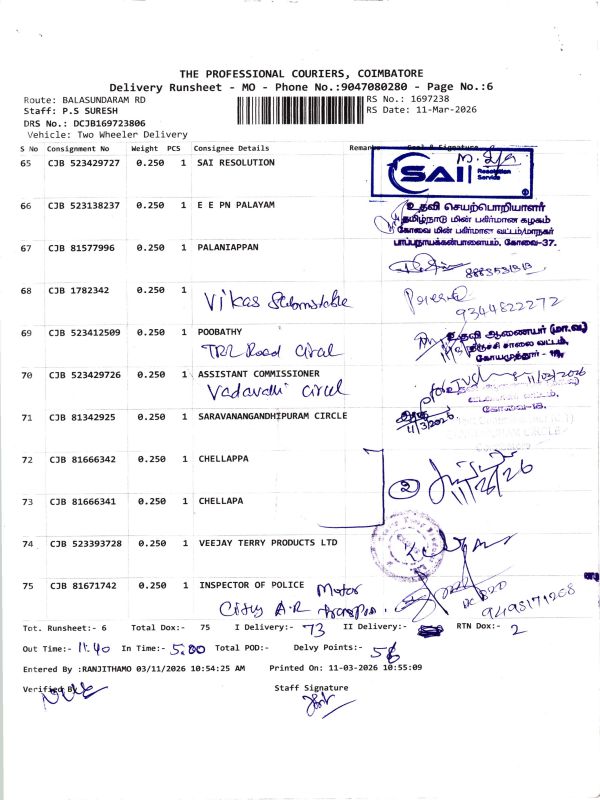 THE PROFESSIONAL COURIERS, COIMBATORE
Delivery Runsheet - MO - Phone No.:9047080280 - Page No.:6
Route: BALASUNDARAM RD
RS No.: 1697238
Staff: P.S SURESH
RS Date: 11-Mar-2026
DRS No.: DCJB169723806
Vehicle: Two Wheeler Delivery
S No Consignment No Weight PCS Consignee Details Remarks Seal & Signature
65 CJB 523429727 0.250 1 SAI RESOLUTION
SAI Resolution Service
66 CJB 523138237 0.250 1 E E PN PALAYAM
உதவி செயற்பொறியாளர்
தமிழ்நாடு மின் பகிர்மான கழகம்
கோவை மின் பகிர்மான வட்டம்/மாநகர்
பாப்பநாயக்கன்பாளையம், கோவை-37.
67 CJB 81577996 0.250 1 PALANIAPPAN
68 CJB 1782342 0.250 1
Vikas
9344822272
69 CJB 523412509 0.250 1 POOBATHY
உதவி ஆணையர் (மா.வ)
திருச்சி சாலை வட்டம்,
கோயமுத்தூர் - 18.
Road
70 CJB 523429726 0.250 1 ASSISTANT COMMISSIONER
11/03/2026
கோவை-18.
71 CJB 81342925 0.250 1 SARAVANANGANDHIPURAM CIRCLE
11/3/2026
72 CJB 81666342 0.250 1 CHELLAPPA
2
73 CJB 81666341 0.250 1 CHELLAPA
74 CJB 523393728 0.250 1 VEEJAY TERRY PRODUCTS LTD
75 CJB 81671742 0.250 1 INSPECTOR OF POLICE Motor
City A.R
Tot. Runsheet:- 6 Total Dox:- 75 I Delivery:- 73 II Delivery:- RTN Dox:- 2
Out Time:- 11.40 In Time:- 5.00 Total POD:- Delvy Points:-
Entered By :RANJITHAMO 03/11/2026 10:54:25 AM Printed On: 11-03-2026 10:55:09
Verified By Staff Signature